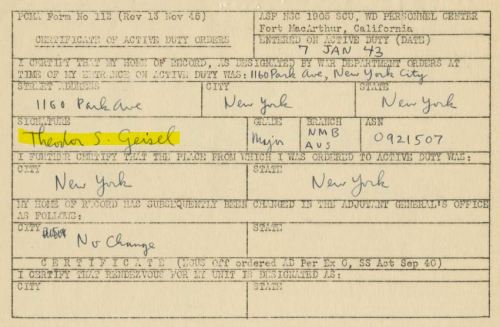 PCMA Form No 112 (Rev 13 Nov 45)
ASF NSC 1903 SCU, WD PERSONNEL CENTER
Fort MacArthur, California
CERTIFICATE OF ACTIVE DUTY ORDERS
ENTERED ON ACTIVE DUTY (DATE)
7 JAN 43
I CERTIFY THAT MY HOME OF RECORD, AS DESIGNATED BY WAR DEPARTMENT ORDERS AT
TIME OF MY ENTRANCE ON ACTIVE DUTY WAS: 1160 Park Ave, New York City
STREET ADDRESS CITY STATE
1160 Park Ave New York New York
SIGNATURE GRADE BRANCH ASN
Theodor S. Geisel Major NMB AUS 0921507
I FURTHER CERTIFY THAT THE PLACE FROM WHICH I WAS ORDERED TO ACTIVE DUTY WAS:
CITY STATE
New York New York
MY HOME OF RECORD HAS SUBSEQUENTLY BEEN CHANGED IN THE ADJUTANT GENERAL'S OFFICE
AS FOLLOWS:
CITY STATE
No Change
CERTIFICATE (NOUS Off ordered AD Per Ex O, SS Act Sep 40)
I CERTIFY THAT RENDEZVOUS FOR MY UNIT IS DESIGNATED AS:
CITY STATE